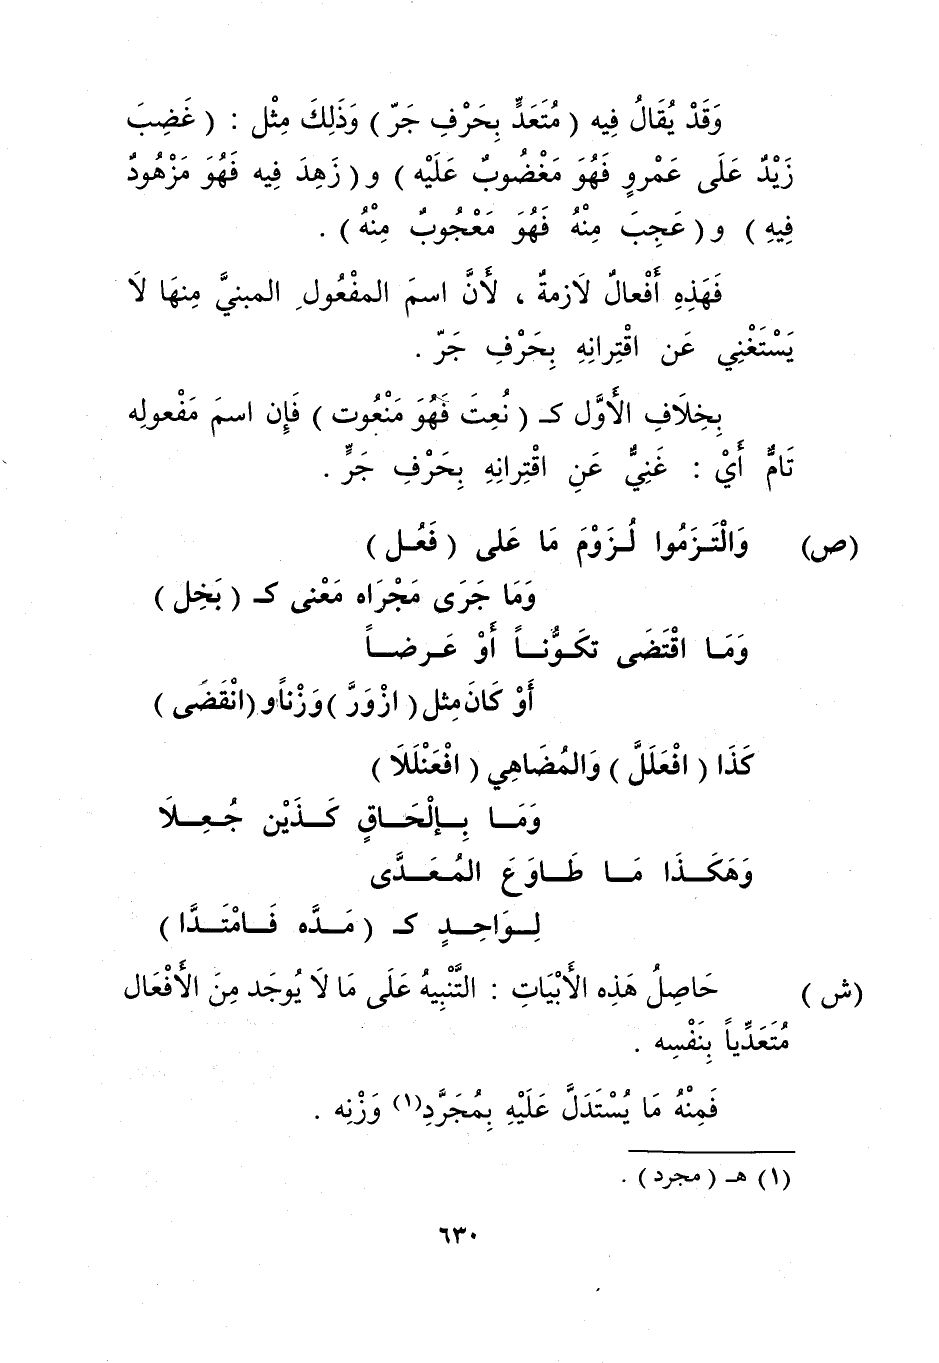 وَقَدْ يُقَالُ فِيه ( مُتَعَدٍّ بِحَرْفِ جَرّ ) وَذَلِكَ مِثْل : ( غَضِبَ
زَيْدٌ عَلَى عَمْرٍو فَهُوَ مَغْضُوبٌ عَلَيْه ) و ( زَهِدَ فِيه فَهُوَ مَزْهُودٌ
فِيهِ ) و ( عَجِبَ مِنْهُ فَهُوَ مَعْجُوبٌ مِنْهُ ) .
فَهَذِهِ أَفْعالٌ لَازمةٌ ، لَأنَّ اسمَ المفْعُولِ المبنيَّ مِنهَا لَا
يَسْتَغْنِي عَن اقْتِرانِهِ بِحَرْفِ جَرّ .
بِخِلَافِ الأَوَّل كـ ( نُعِتَ فَهُوَ مَنْعُوت ) فَإِن اسمَ مَفْعولِه
تَامٌّ أَيْ : غَنِيٌّ عَنِ اقْتِرانِهِ بِحَرْفِ جَرٍّ .
(ص) وَالْتَـزَمُوا لُـزَوْمَ مَا عَلى ( فَعُـل )
وَمَا جَرَى مَجْرَاه مَعْنى كـ ( بَخِل )
وَمَـا اقْتَضَى تكَـوُّنـاً أَوْ عَـرضـاً
أَوْ كَانَ مِثل ( ازْوَرَّ ) وَزْناً و ( انْقَضَى )
كَذَا ( افْعَلَلَّ ) وَالمُضَاهِي ( افْعَنْلَلَا )
وَمَـا بِـإلْحَـاقٍ كَـذَيْن جُـعِـلَا
وَهَكَـذَا مَـا طَـاوَعَ المُـعَـدَّى
لِـوَاحِـدٍ كـ ( مَـدَّه فَـامْتَـدَّا )
(ش ) حَاصِلُ هَذِه الأَبْيَاتِ : التَّنْبِيهُ عَلَى مَا لَا يُوجَد مِنَ الأَفْعَال
مُتَعَدِّياً بِنَفْسِه .
فَمِنْهُ مَا يُسْتَدَلَّ عَلَيْهِ بِمُجَرَّدِ(١) وَزْنِه .
(١) هـ ( مجرد ) .
٦٣٠